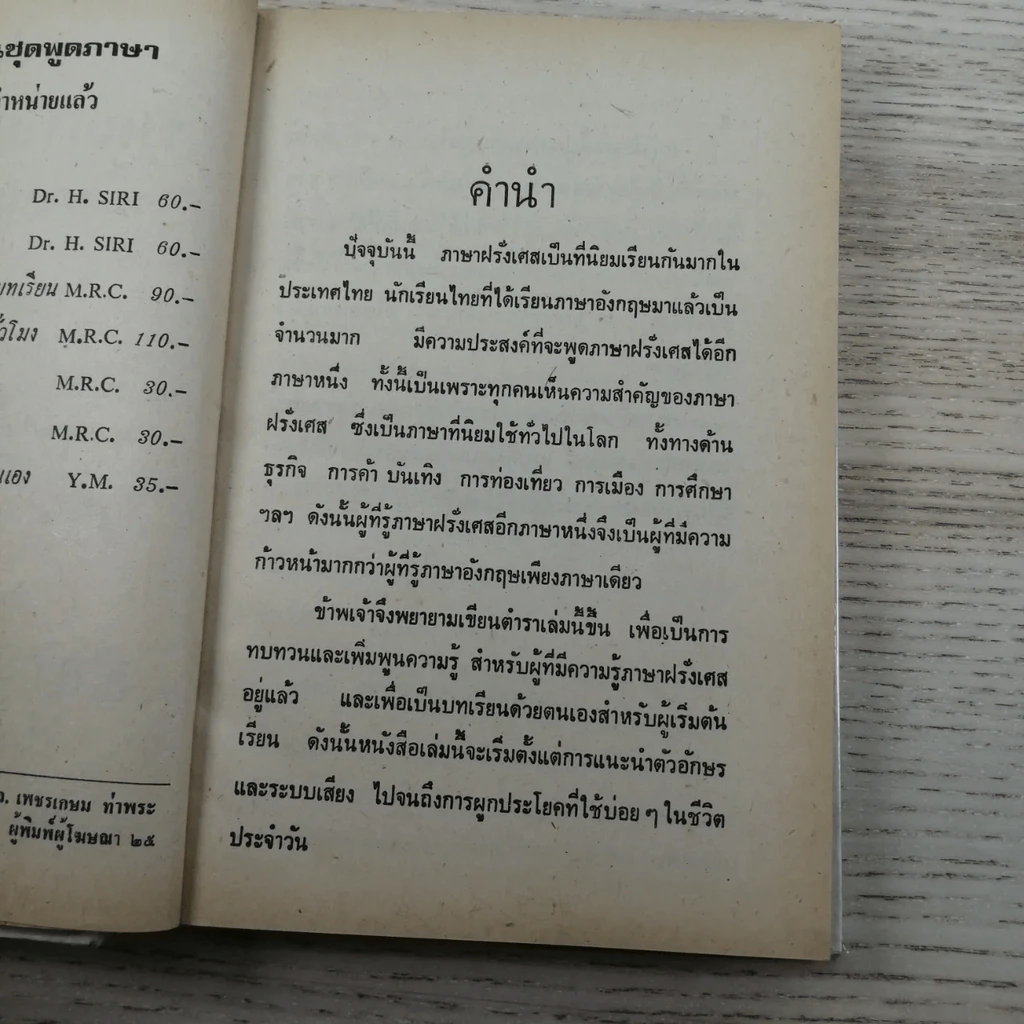 ชุดพูดภาษา
แล้ว
Dr. H. SIRI 60.-
Dr. H. SIRI 60.-
M.R.C. 90.-
M.R.C. 110.-
M.R.C. 30.-
M.R.C. 30.-
Y.M. 35.-
เพชรเกษม ท่าพระ
ผู้พิมพ์ผู้โฆษณา ๒๕
คำนำ
ปัจจุบันนี้ ภาษาฝรั่งเศสเป็นที่นิยมเรียนกันมากใน
ประเทศไทย นักเรียนไทยที่ได้เรียนภาษาอังกฤษมาแล้วเป็น
จำนวนมาก มีความประสงค์ที่จะพูดภาษาฝรั่งเศสได้อีก
ภาษาหนึ่ง ทั้งนี้เป็นเพราะทุกคนเห็นความสำคัญของภาษา
ฝรั่งเศส ซึ่งเป็นภาษาที่นิยมใช้ทั่วไปในโลก ทั้งทางด้าน
ธุรกิจ การค้า บันเทิง การท่องเที่ยว การเมือง การศึกษา
ฯลฯ ดังนั้นผู้ที่รู้ภาษาฝรั่งเศสอีกภาษาหนึ่งจึงเป็นผู้ที่มีความ
ก้าวหน้ามากกว่าผู้ที่รู้ภาษาอังกฤษเพียงภาษาเดียว
ข้าพเจ้าจึงพยายามเขียนตำราเล่มนี้ขึ้น เพื่อเป็นการ
ทบทวนและเพิ่มพูนความรู้ สำหรับผู้ที่มีความรู้ภาษาฝรั่งเศส
อยู่แล้ว และเพื่อเป็นบทเรียนด้วยตนเองสำหรับผู้เริ่มต้น
เรียน ดังนั้นหนังสือเล่มนี้จะเริ่มตั้งแต่การแนะนำตัวอักษร
และระบบเสียง ไปจนถึงการผูกประโยคที่ใช้บ่อย ๆ ในชีวิต
ประจำวัน